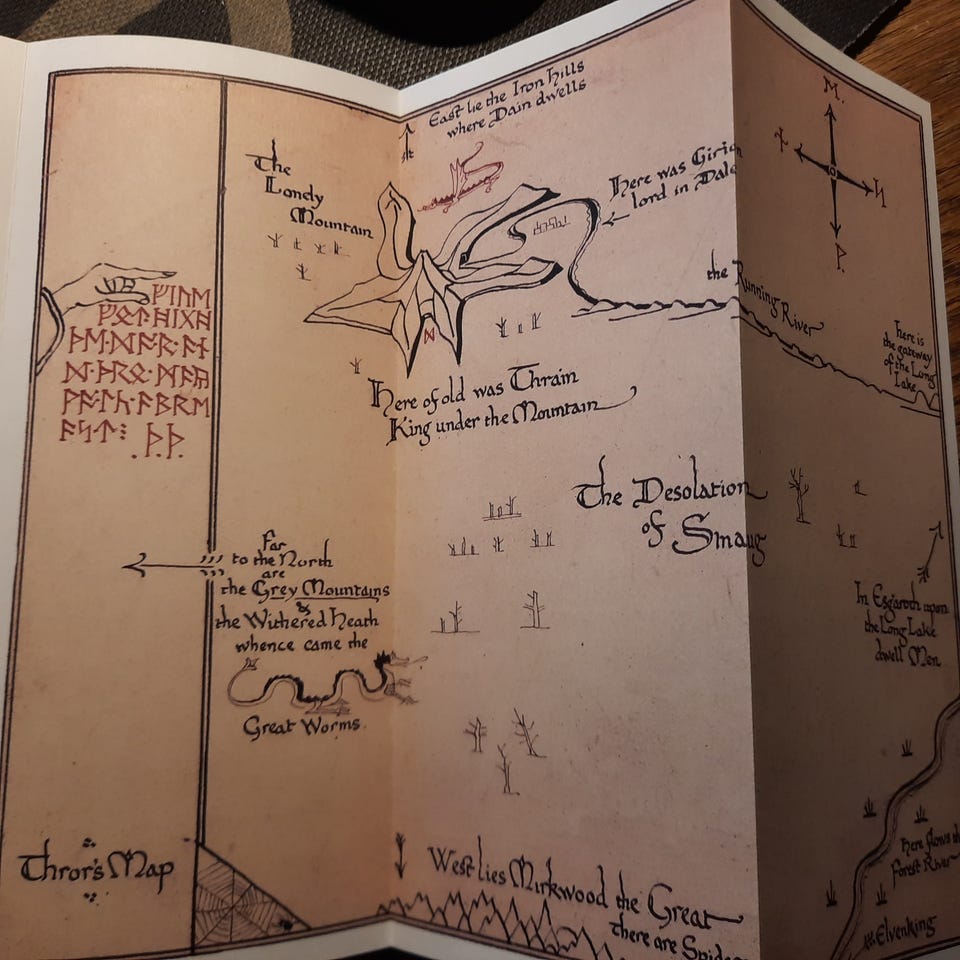 East lie the Iron Hills
where Dain dwells
The
Lonely
Mountain
Here was Girion
lord in Dale
the Running River
here is
the gateway
of the Long
Lake
ᚠᛁᚢᛖ
ᚠᛟᛏ᛫ᚻᛁᚷᚻ
ᚦᛖ᛫ᛞᚩᚱ᛫ᚫᚾ
ᛞ᛫ᚦᚱᛟ᛫ᛗᚫᚣ
ᚹᚫᛚᚳ᛫ᚫᛒᚱᛖ
ᚫᛋᛏ⁝ .ᚦ.ᚦ.
ᛞ
Here of old was Thrain
King under the Mountain
The Desolation
of Smaug
Far
to the North
are
the Grey Mountains
&
the Withered Heath
whence came the
Great Worms
In Esgaroth upon
the Long Lake
dwell Men
Thror's Map
West lies Mirkwood the Great
there are Spiders
here flows the
Forest River
Elvenking